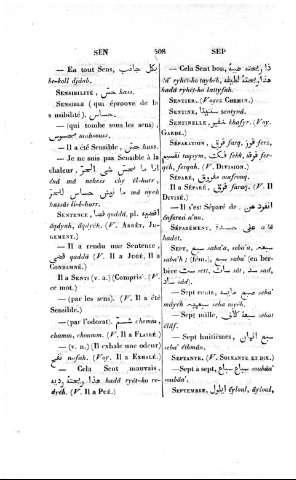 SEN 508 SEP
— En tout Sens, بكل جانب
be-koll djânb.
SENSIBILITÉ, حسّ hass.
SENSIBLE (qui éprouve de la
sensibilité), حساس hassâs.
— (qui tombe sous les sens),
محسوس mahsous.
— Il a été Sensible, حسّ hass.
— Je ne suis pas Sensible à la
chaleur, انا ما احس شي الحرّ
énâ mâ nehess chy êl-harr,
ما نيش حساس للحرّ mâ nych
hassâs li-l-harr.
SENTENCE, قضا qadâ, pl. اقضية
âqdyah, âqdyéh. (V. ARRÊT, JU-
GEMENT.)
— Il a rendu une Sentence,
قضى qaddä (V. Il a JUGÉ, Il a
CONDAMNÉ.)
Il a SENTI (v. a) (Compris). (V.
ce mot.)
— (par les sens). (V. Il a été
Sensible.)
— (par l'odorat). شمم chemm,
chamm, chomm. (V. Il a FLAIRÉ.)
— (v. n.) (Il exhale une odeur)
نفح nafah. (V. Il a EXHALÉ.)
— Cela Sent mauvais,
هذا ريحته رديه hadâ ryêt-ho re-
dyéh. (V. Il a PUÉ.)
— Cela Sent bon, ذا ريحته طيبة
dâ ryhét-ho taybéh, هذا ريحته لطيفة
hadâ ryhét-ho lattyfah.
SENTIER. (Voyez CHEMIN.)
SENTINE, سنتينة sentyna.
SENTINELLE, خفير khafyr. (Voy.
GARDE.)
SÉPARATION, فرق farq, فرز ferz,
تقسيم taqsym, فكّ fekk, فرقة fer-
qéh, ferqah. (V. DIVISION.)
SÉPARÉ, مفروق mafrouq.
Il a SÉPARÉ, فرق faraq. (V. Il
DIVISÉ.)
— Il s'est Séparé de انفرد عن
ênferad a'nn.
SÉPARÉMENT, على حدة a'lä
hadét.
SEPT, سبع saba', seba', سبعة
saba'h; (fém.), سبع saba' (en ber-
bère ست sett, سات sât, سد sad,
ساد sâd).
— Sept cents, سبع مايه seba'
mâyéh, سبعميه seba myéh.
— Sept mille, سبعة آلاف seba'
êlâf.
— Sept huitièmes, سبع اثمان
seba' êthmân.
SEPTANTE. (V. SOIXANTE ET DIX.)
— Sept à sept, سباع سباع soubâa'
soubâa'.
SEPTEMBRE, ايلول êyloul, êyloul,